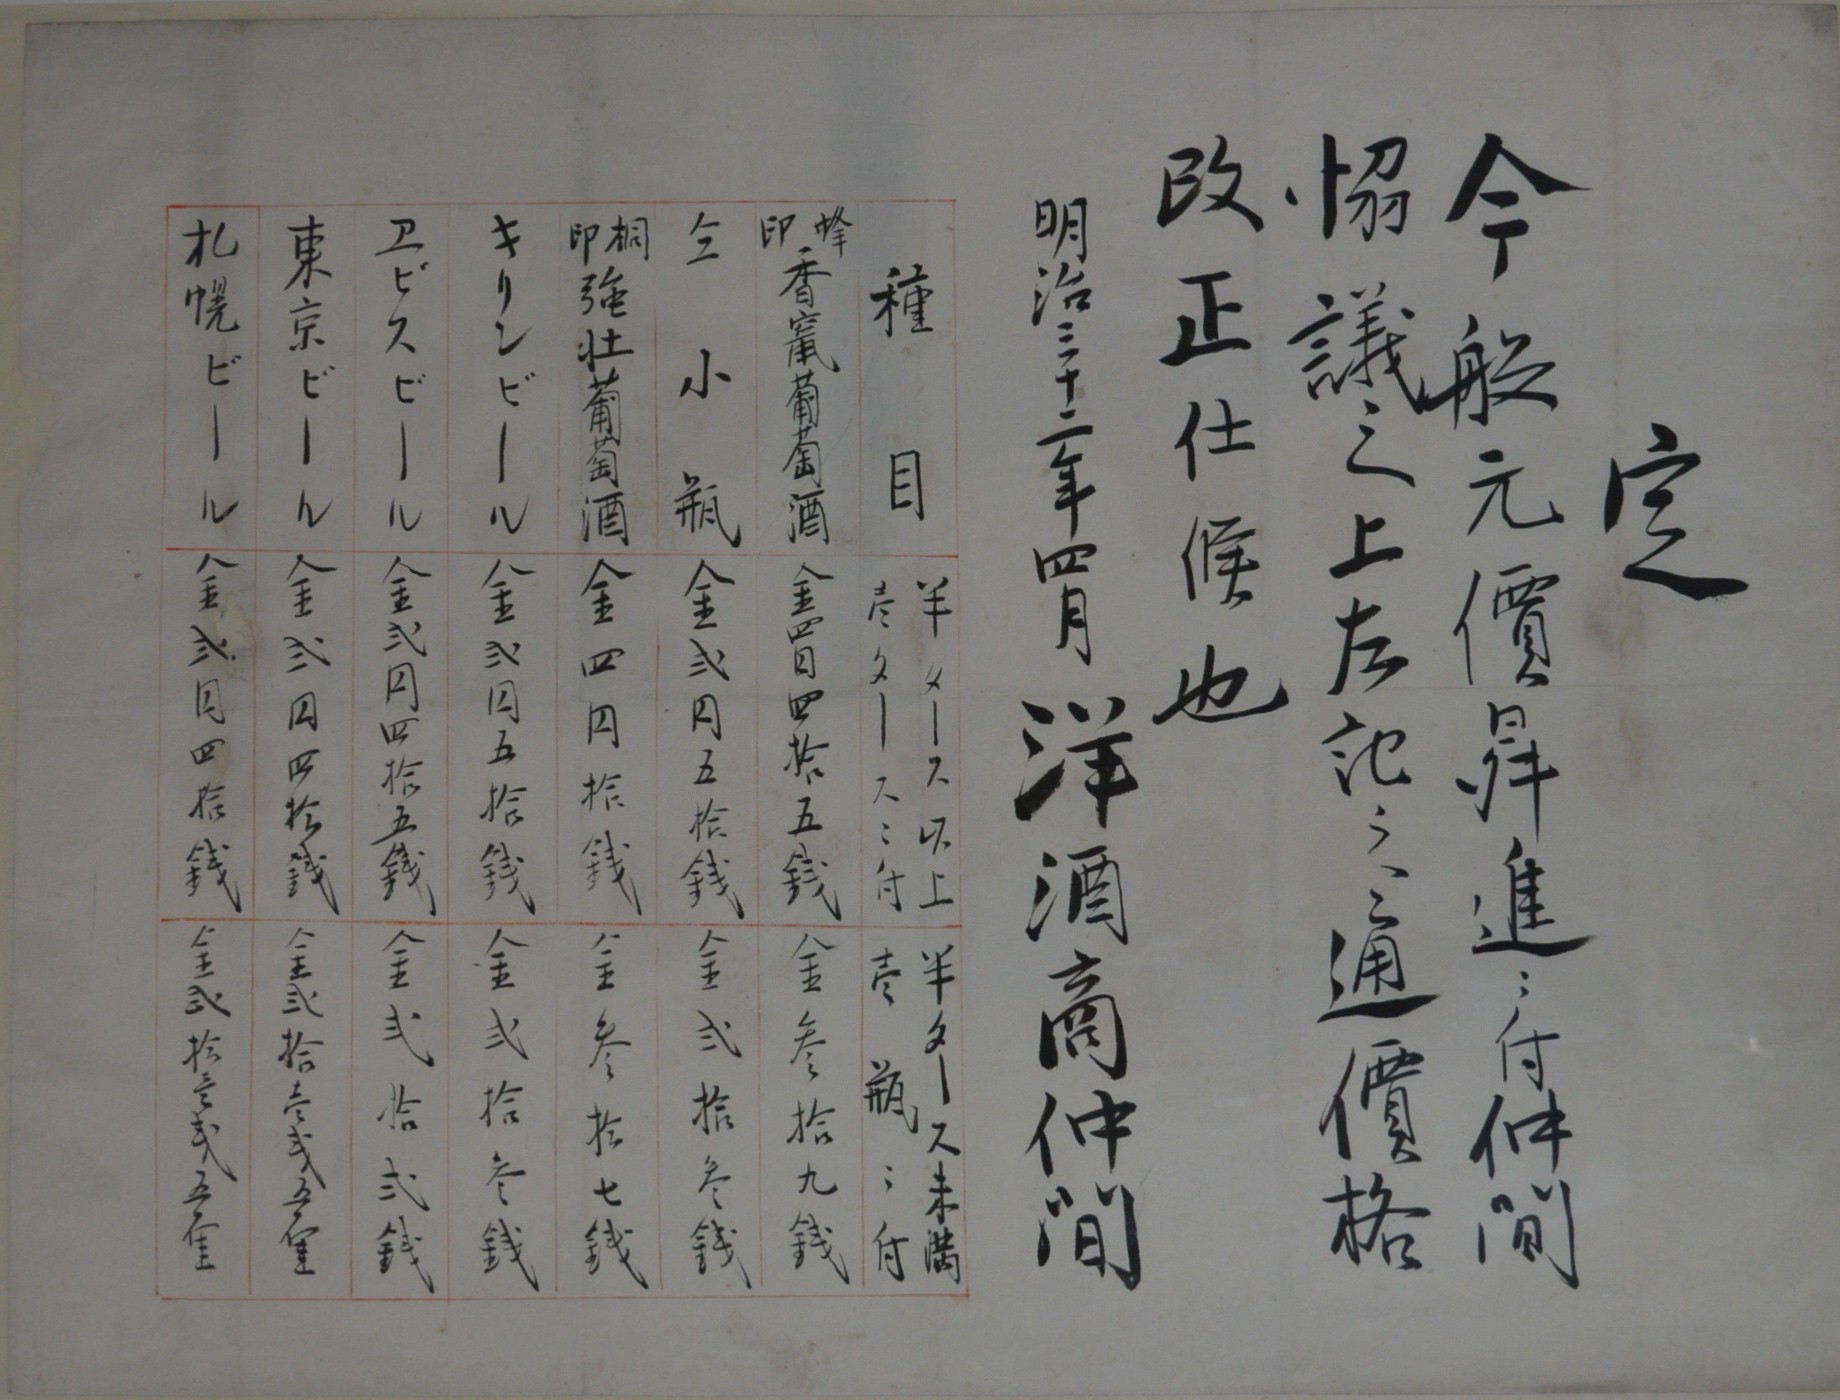 定
今般元價昇進ニ付仲間
協議之上左記之通價格
改正仕候也
明治三十二年四月 洋酒商仲間
種目 半タース以上壱タースニ付 半タース未満壱瓶ニ付
蜂印香竄葡萄酒 金四円四拾五銭 金参拾九銭
仝小瓶 金弐円五拾銭 金弐拾参銭
桐印強壮葡萄酒 金四円拾銭 金参拾七銭
キリンビール 金弐円五拾銭 金弐拾参銭
ヱビスビール 金弐円四拾五銭 金弐拾弐銭
東京ビール 金弐円四拾銭 金弐拾壱戋五厘
札幌ビール 金弐円四拾銭 金弐拾壱戋五厘